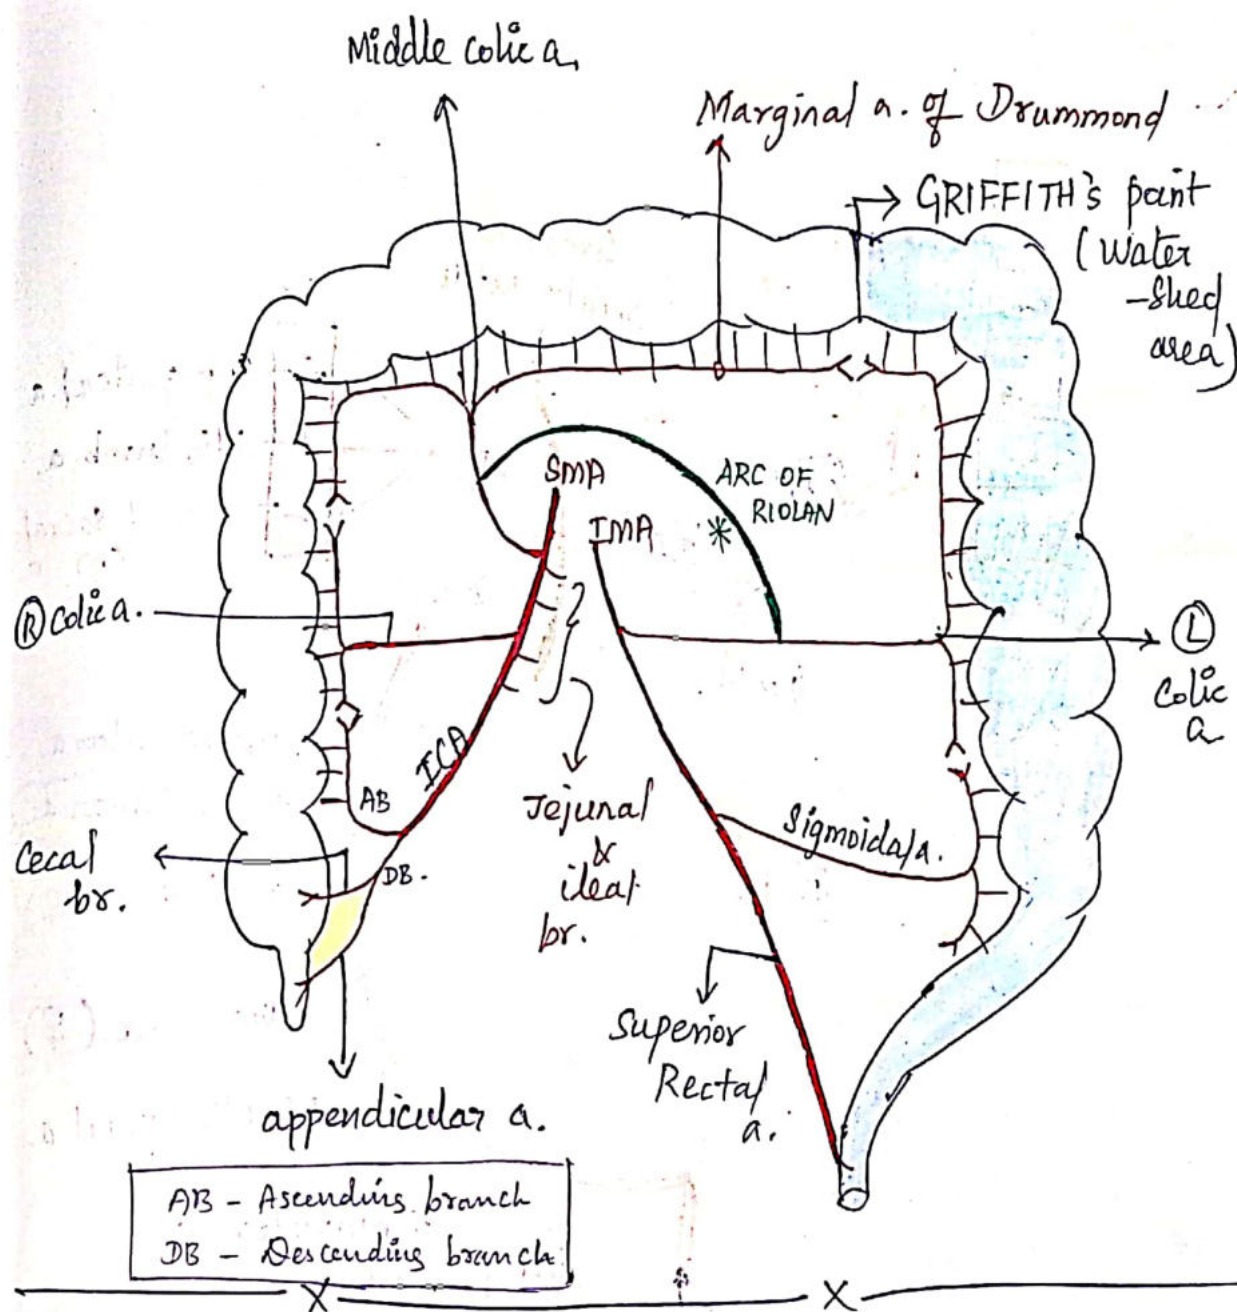 Middle colic a.
Marginal a. of Drummond
GRIFFITH's point
(Water
-Shed
area)
SMA
ARC OF
RIOLAN
*
IMA
Ⓡ Colic a.
Ⓛ
Colic
a
ICA
AB
Jejunal
&
ileal
br.
Sigmoidal a.
Cecal
br.
DB.
Superior
Rectal
a.
appendicular a.
AB - Ascending branch
DB - Descending branch
X
X